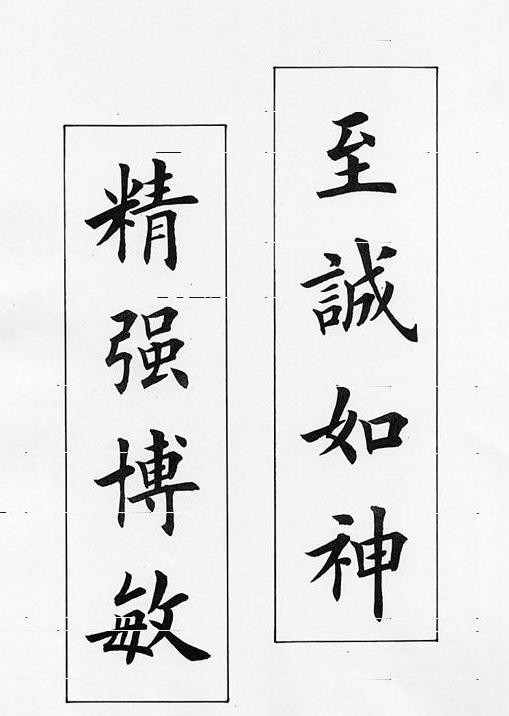 至誠如神
精强博敏